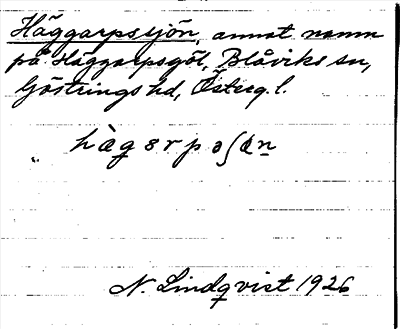 Häggarpssjön, annat namn
på Häggarpsgöl, Blåviks sn,
Göstrings hd, Österg. l.
hàgarpəʃøn
N. Lindqvist 1926